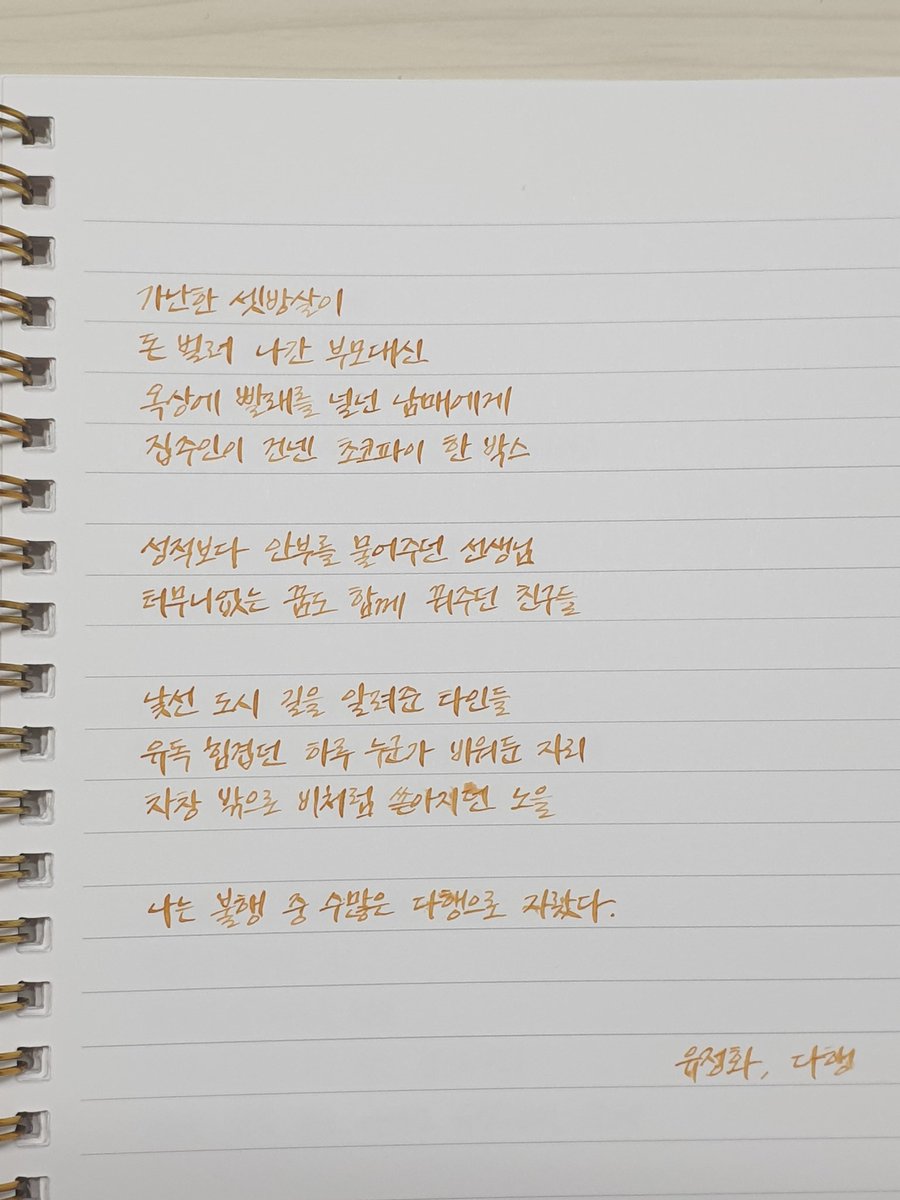 가난한 셋방살이
돈 벌러 나간 부모대신
옥상에 빨래를 널넌 남매에게
집주인이 건넨 초코파이 한 박스
성적보다 안부를 물어주던 선생님
터무니없는 꿈도 함께 꿔주던 친구들
낯선 도시 길을 알려준 타인들
유독 힘겹던 하루 누군가 비워둔 자리
차창 밖으로 비처럼 쏟아지던 노을
나는 불행 중 수많은 다행으로 자랐다.
유정화, 다행